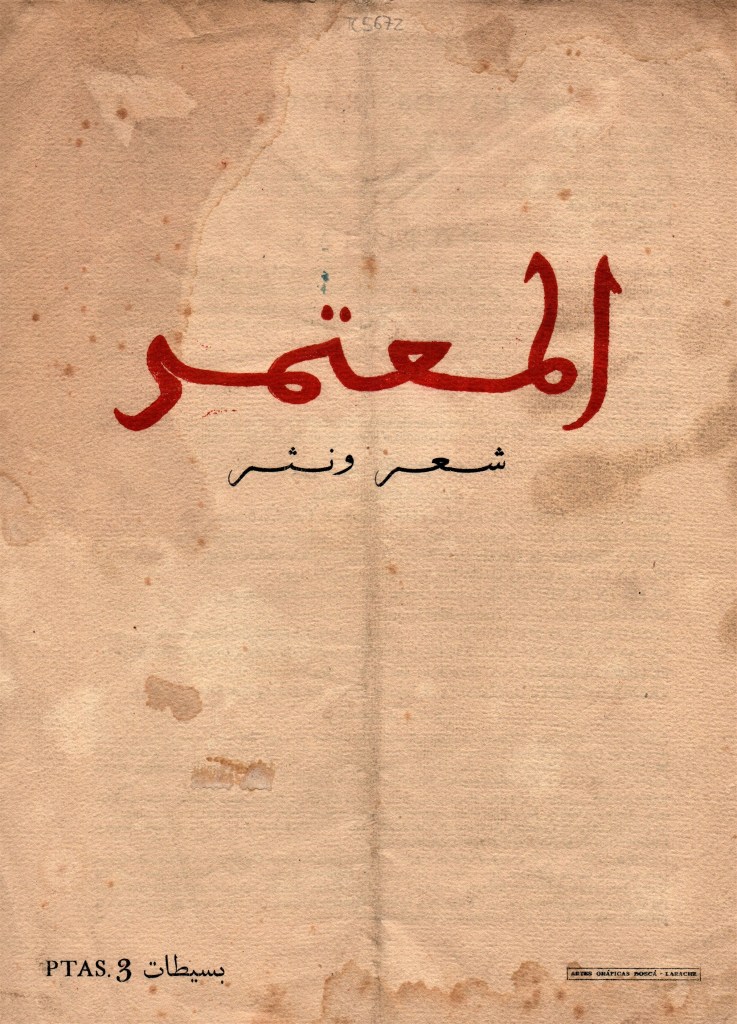 TC 5672
المعتمد
شعر ونثر
PTAS. 3 بسيطات
ARTES GRÁFICAS BOSCÁ - LARACHE